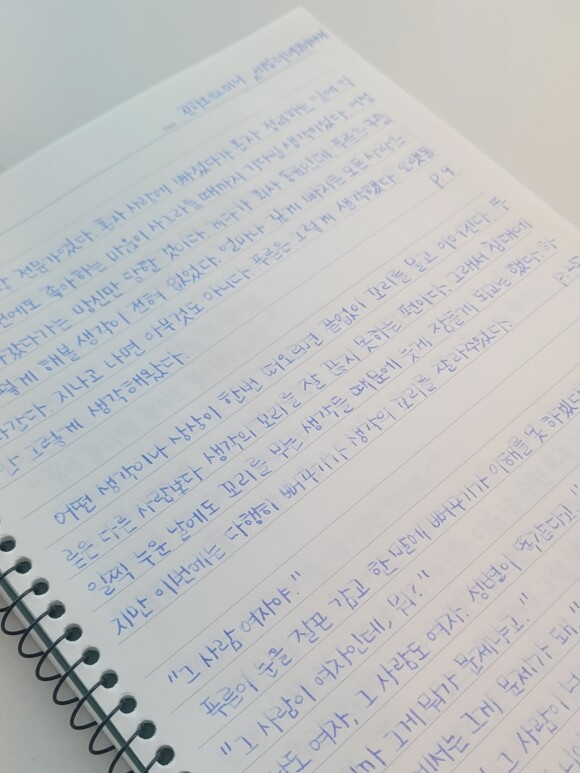 전문가였다. 혼자 사랑에 빠졌다가 혼자 정리하는 일에
좋아하는 마음이 사그라들 때까지 기다릴 생각이었다.
갔다가는 망신만 당할 것이다. 게다가 회사 동료인데 푸른은
해볼 생각이 전혀 없었다. 얼마나 낮게 빠지든 모든 사랑은
간다. 지나고 나면 아무것도 아니다. 푸른은 그렇게 생각했다. 오랫동
안 그렇게 생각해왔다.
p.9
어떤 생각이나 상상이 한번 떠오르면 끝없이 꼬리를 물고 이어진다. 푸
른은 다른 사람보다 생각의 꼬리를 잘 끊지 못하는 편이다. 그래서 침대에
일찍 누운 날에도 꼬리를 무는 생각들 때문에 늦게 잠들게 되곤 했다. 하
지만 이번에는 다행히 뻐꾸기가 생각의 꼬리를 잘라주었다.
"그 사람 여자야."
푸른이 눈을 질끈 감고 한 말에 뻐꾸기가 이해를 못 하겠다
"그 사람이 여자인데, 뭐?"
도 여자, 그 사람도 여자. 성별이 똑같다고."
그게 뭐가 문제냐고."
그게 문제가 돼."
그 사람이